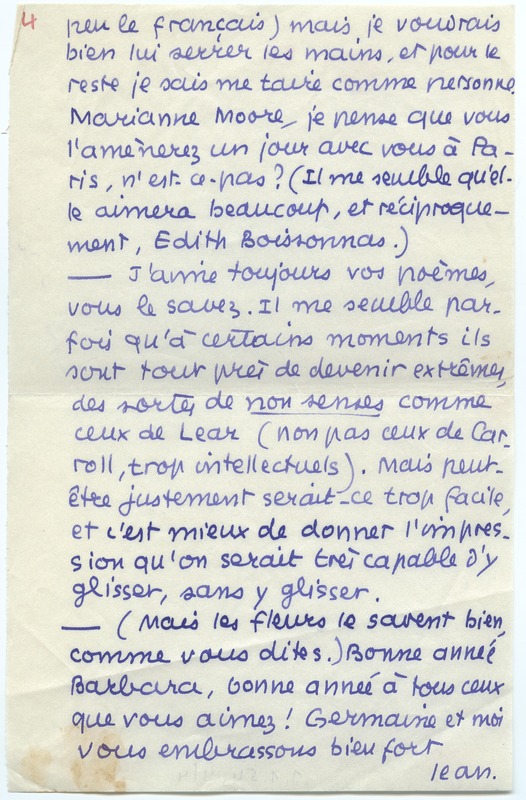 4
peu le français) mais je voudrais
bien lui serrer les mains, et pour le
reste je sais me taire comme personne.
Marianne Moore, je pense que vous
l'amènerez un jour avec vous à Pa-
ris, n'est-ce-pas? (Il me semble qu'el-
le aimera beaucoup, et réciproque-
ment, Edith Boissonnas.)
— J'aime toujours vos poèmes,
vous le savez. Il me semble par-
fois qu'à certains moments ils
sont tout près de devenir extrêmes,
des sortes de non senses comme
ceux de Lear (non pas ceux de Car-
roll, trop intellectuels). Mais peut-
être justement serait-ce trop facile,
et c'est mieux de donner l'impres-
sion qu'on serait très capable d'y
glisser, sans y glisser.
— (Mais les fleurs le savent bien,
comme vous dites.) Bonne année
Barbara, bonne année à tous ceux
que vous aimez! Germaine et moi
vous embrassons bien fort
Jean.